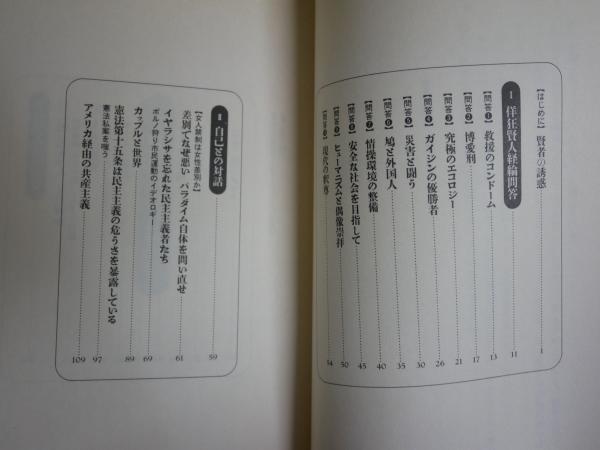 【はじめに】賢者の誘惑 1
I 佯狂賢人経綸問答 11
【問答❶】救援のコンドーム 13
【問答❷】博愛刑 17
【問答❸】究極のエコロジー 21
【問答❹】ガイジンの優勝者 26
【問答❺】災害と闘う 30
【問答❻】鳩と外国人 35
【問答❼】情操環境の整備 40
【問答❽】安全な社会を目指して 45
【問答❾】ヒューマニズムと偶像崇拝 50
【問答❿】現代の釈尊 54
II 自己との対話 59
【女人禁制は女性差別か】
差別でなぜ悪い パラダイム自体を問い直せ 61
イヤラシサを忘れた民主主義者たち
ポルノ狩り市民運動のイデオロギー 69
カップルと世界 89
憲法第十五条は民主主義の危うさを暴露している
憲法私案を嗤う 97
アメリカ経由の共産主義 109